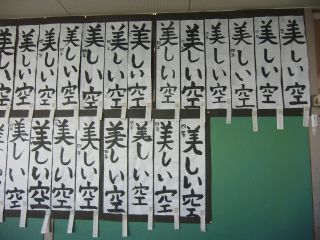 美しい空
美しい空
美しい空
美しい空
美しい空
美しい空
美しい空
美しい空
美しい空
美しい空
美しい空
美しい空
美しい空
美しい空
美しい空
美しい空
美しい空
美しい空
美しい空
美しい空
美しい空